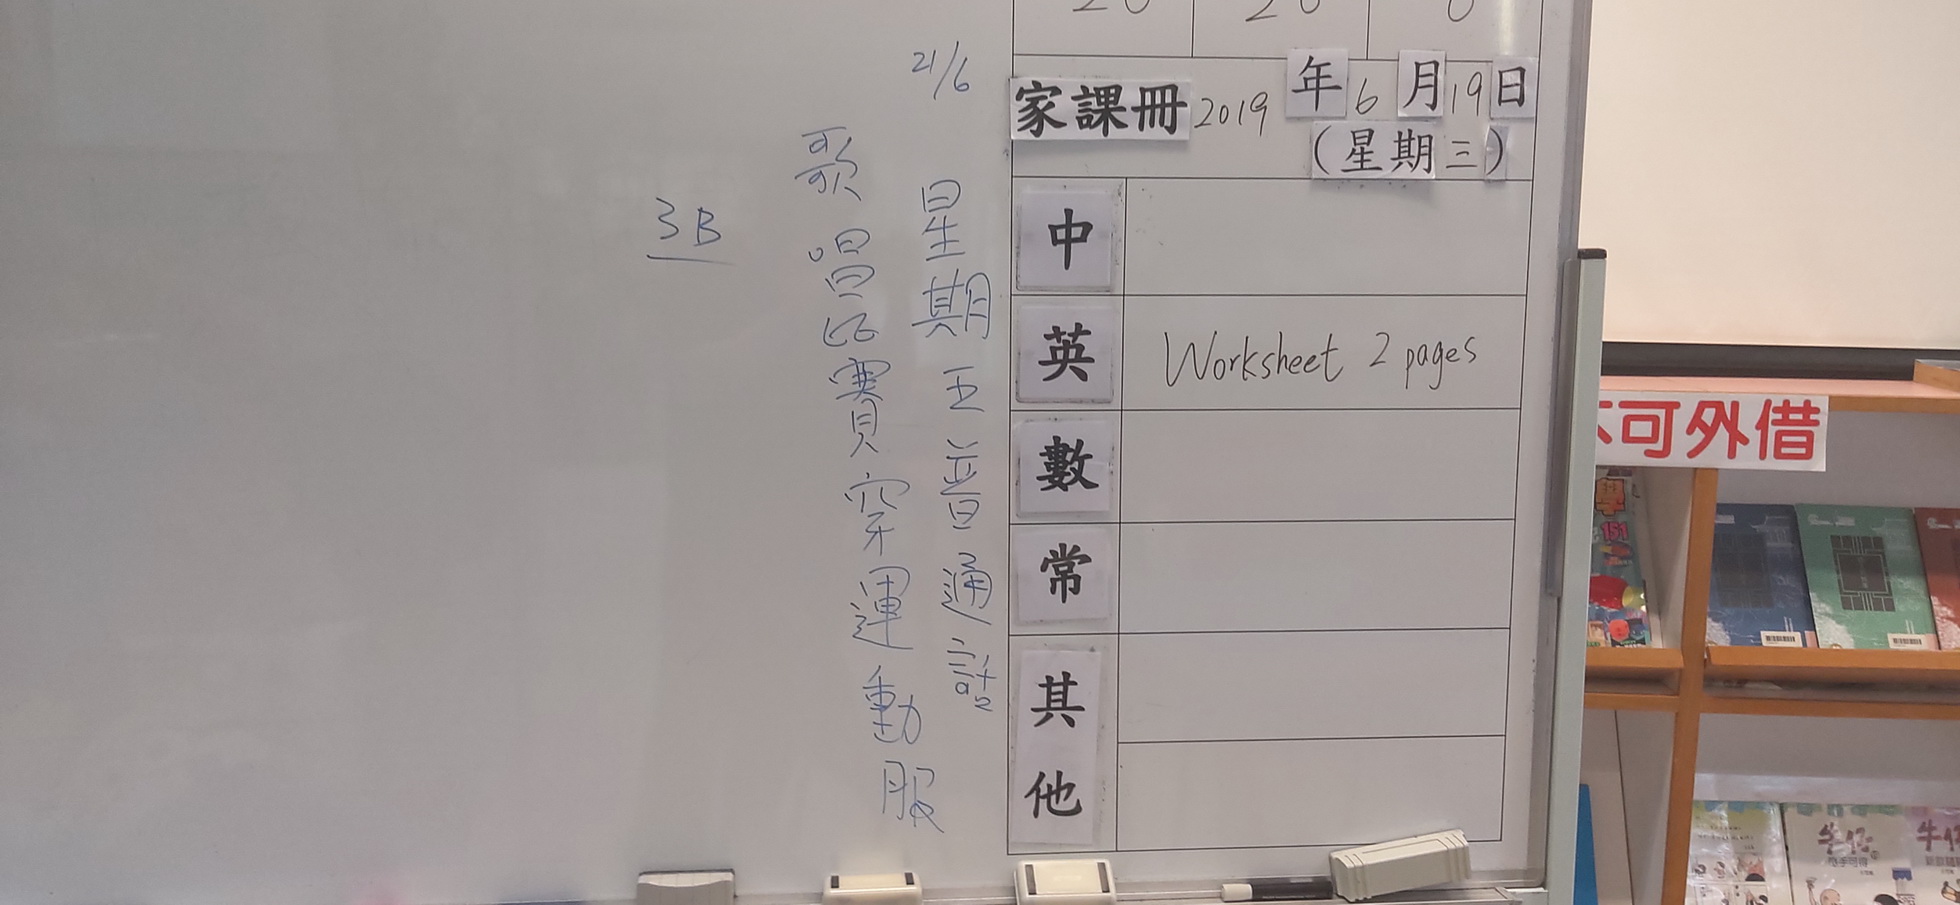 20 20 0
家課冊 2019 年 6 月 19 日
(星期三)
中
英 Worksheet 2 pages
數
常
其他
21/6
星期五普通話
歌唱比賽穿運動服
3B
可外借
牛仔